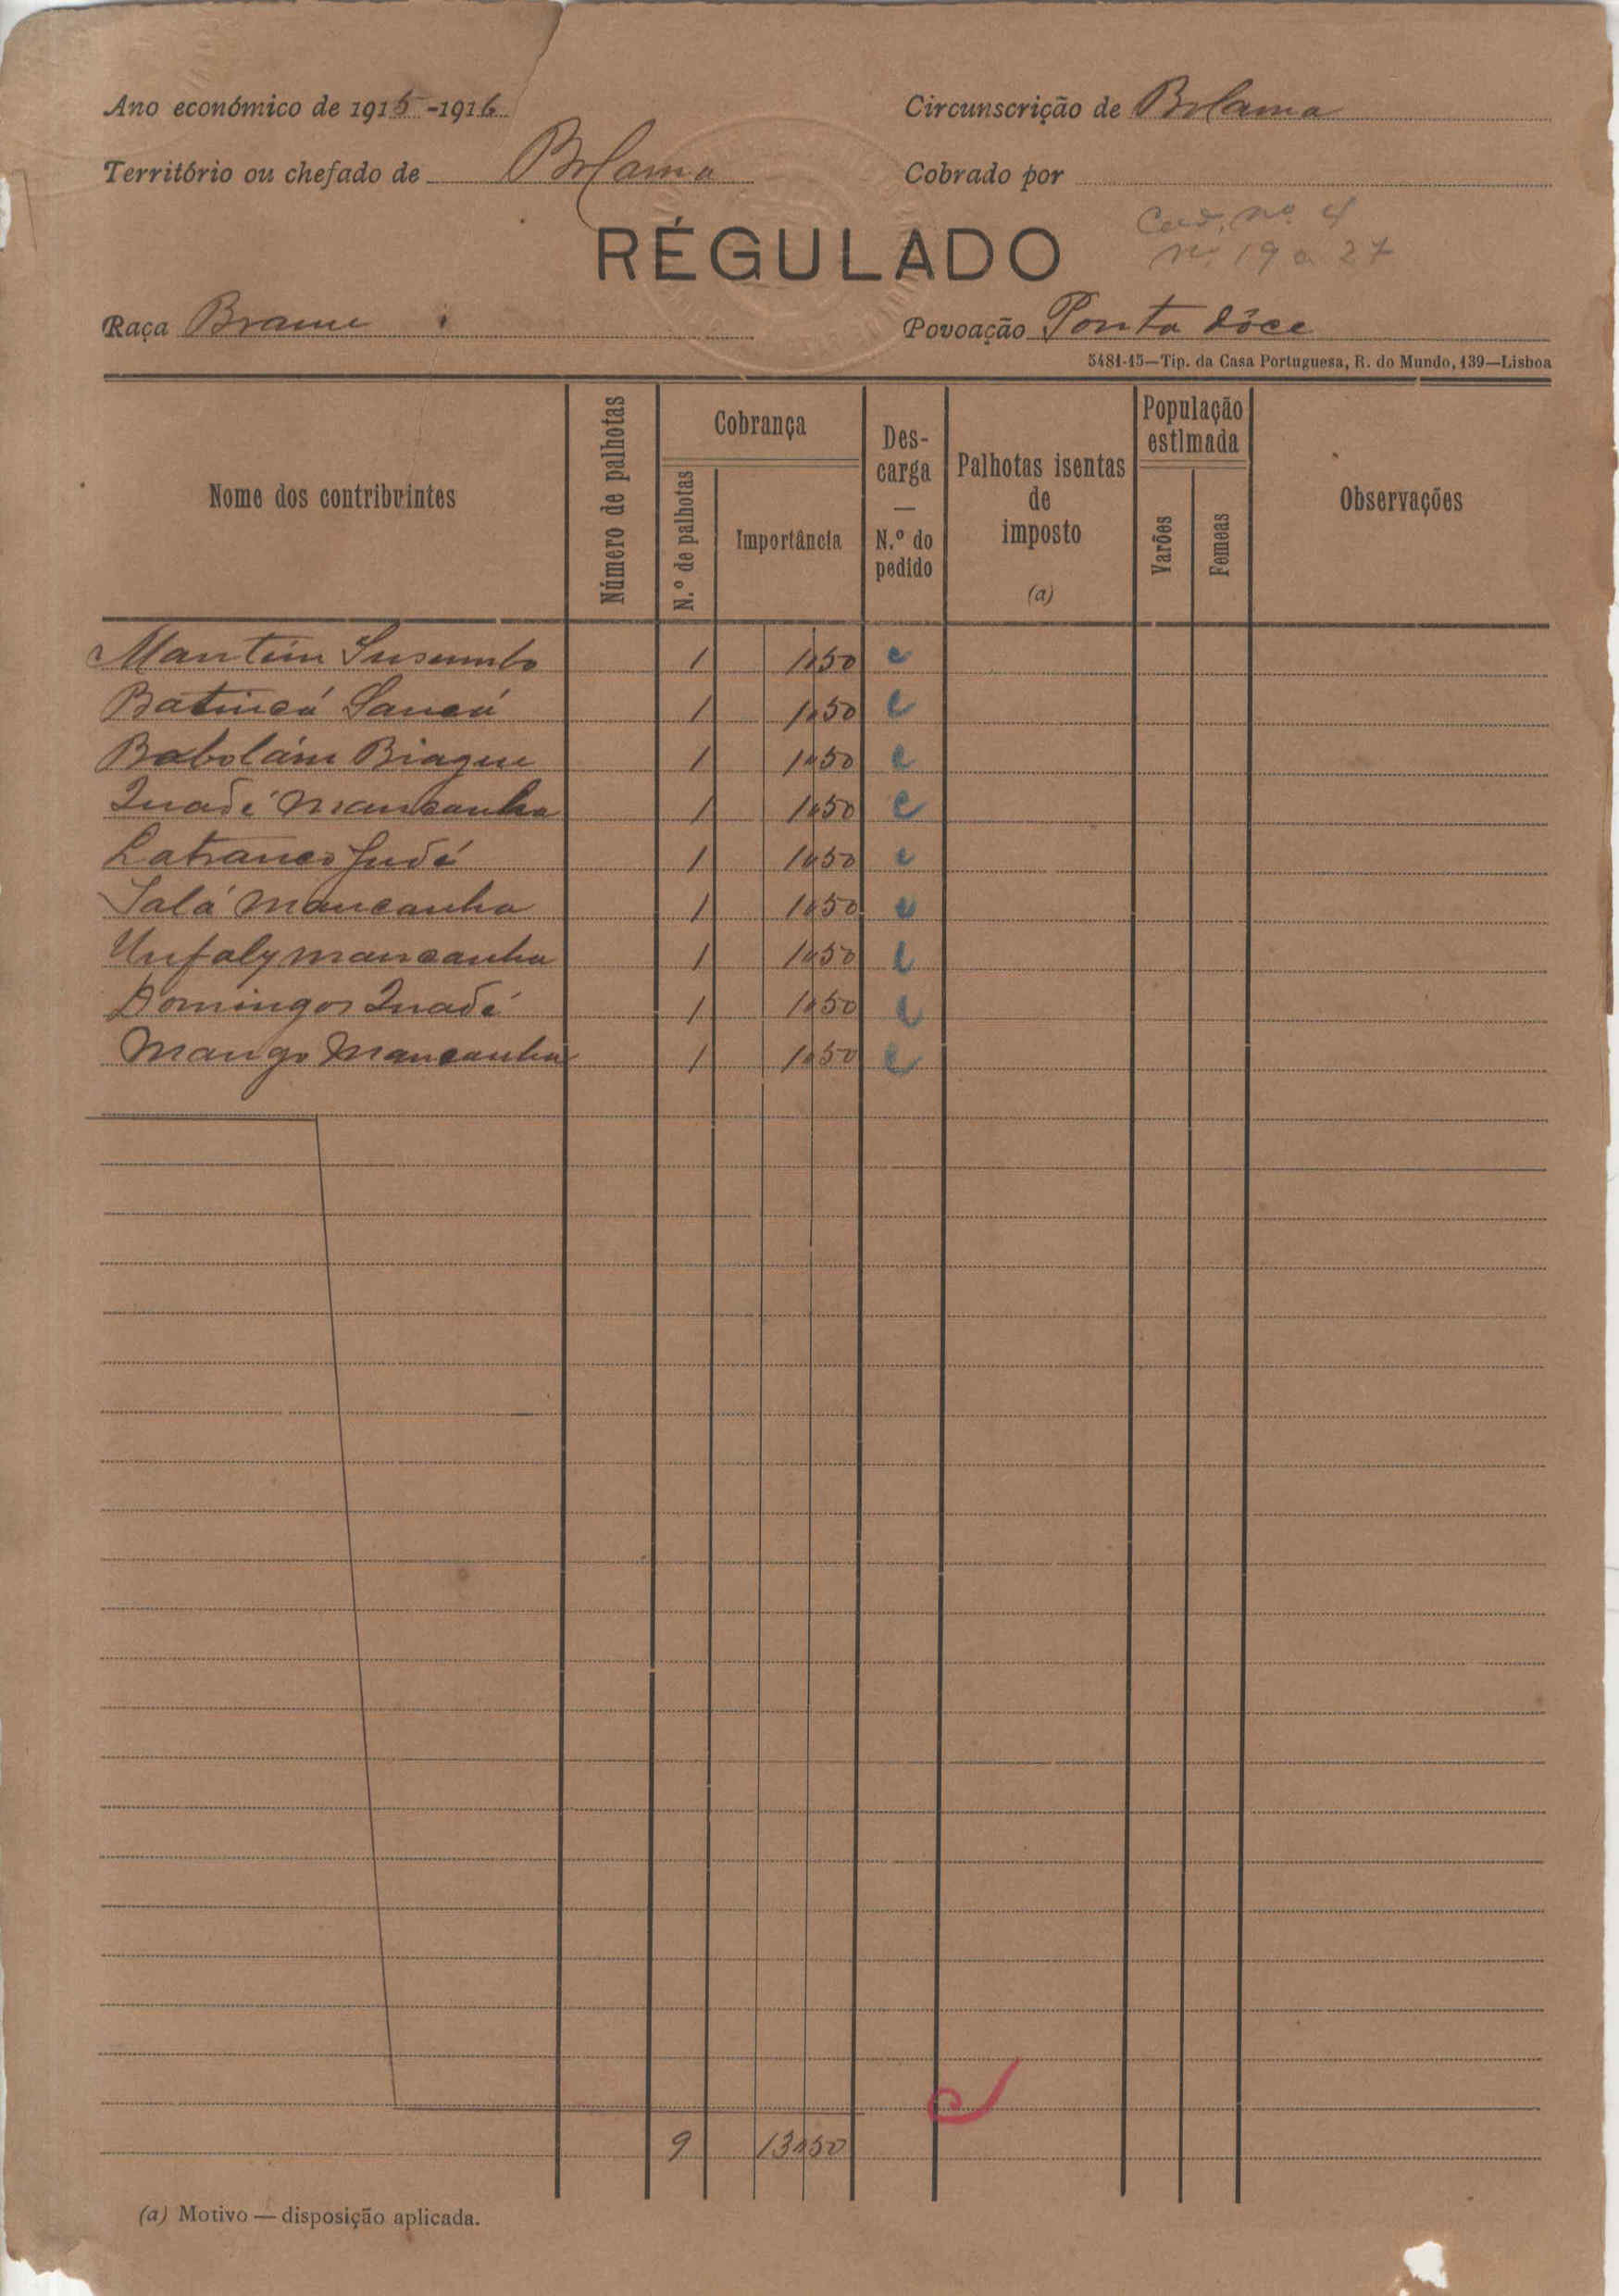 Ano económico de 1915-1916
Circunscrição de Bolama
Território ou chefado de Bolama
Cobrado por
Cad. nº 4
nº 19 a 27
RÉGULADO
Raça Brame
Povoação Ponta dôce
5481-15—Tip. da Casa Portuguesa, R. do Mundo, 139—Lisboa
Nome dos contribuintes
Número de palhotas
Cobrança
N.º de palhotas
Importância
Descarga — N.º do pedido
Palhotas isentas de imposto (a)
População estimada
Varões
Femeas
Observações
1 1$50 c
1 1$50 c
Biague 1 1$50 c
Inadé Mancanha 1 1$50 c
1 1$50 c
Salá Mancanha 1 1$50 c
Unfaly Mancanha 1 1$50 c
Domingos Inadé 1 1$50 c
Mango Mancanha 1 1$50 c
9 13$50
(a) Motivo — disposição aplicada.